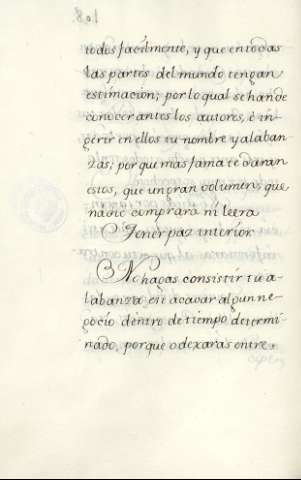 108.
todos facilmente, y que en todas
las partes del mundo tengan
estimacion; por lo qual se han de
conocer antes los autores, è in-
gerir en ellos tu nombre y alaban
zas; porque mas fama te daran
estos, que un gran columen, que
nadie comprara ni leera
Tener paz interior
No hagas consistir tu a-
labanza en acavar algun ne-
gocio dentro de tiempo determi-
nado, porque o dexaras entre-